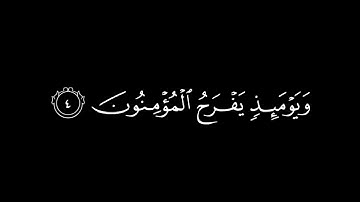 وَيَوْمَئِذٍ يَفْرَحُ ٱلْمُؤْمِنُونَ ٤